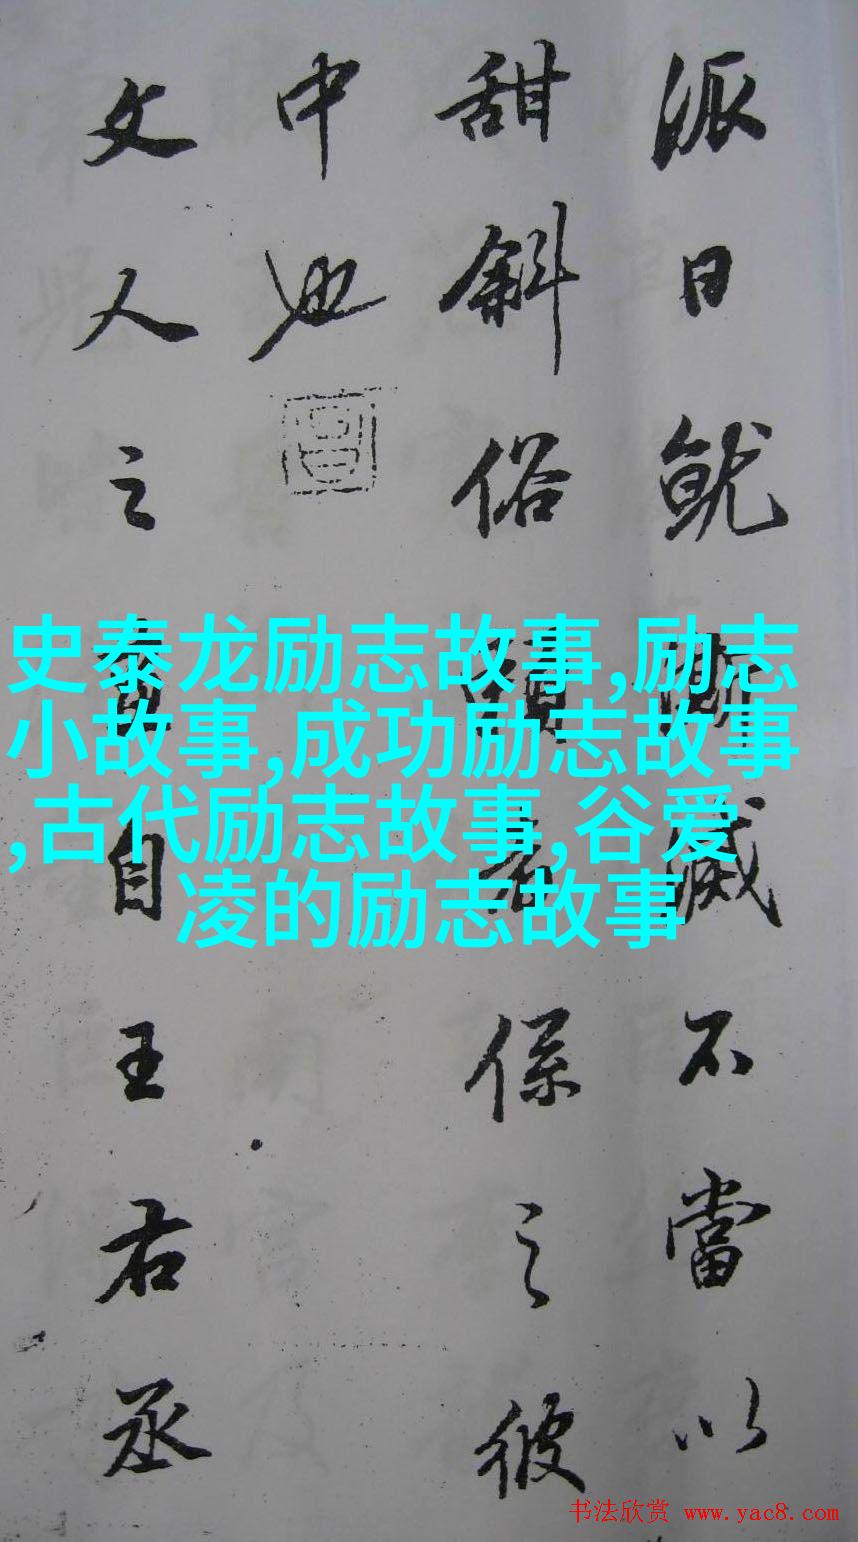 派日就滅不當以
甜斜俗者係之彼
中也
文人之自王右丞
史泰龙励志故事,励志
小故事,成功励志故事
,古代励志故事,谷爱
凌的励志故事
书法欣赏 www.yac8.com